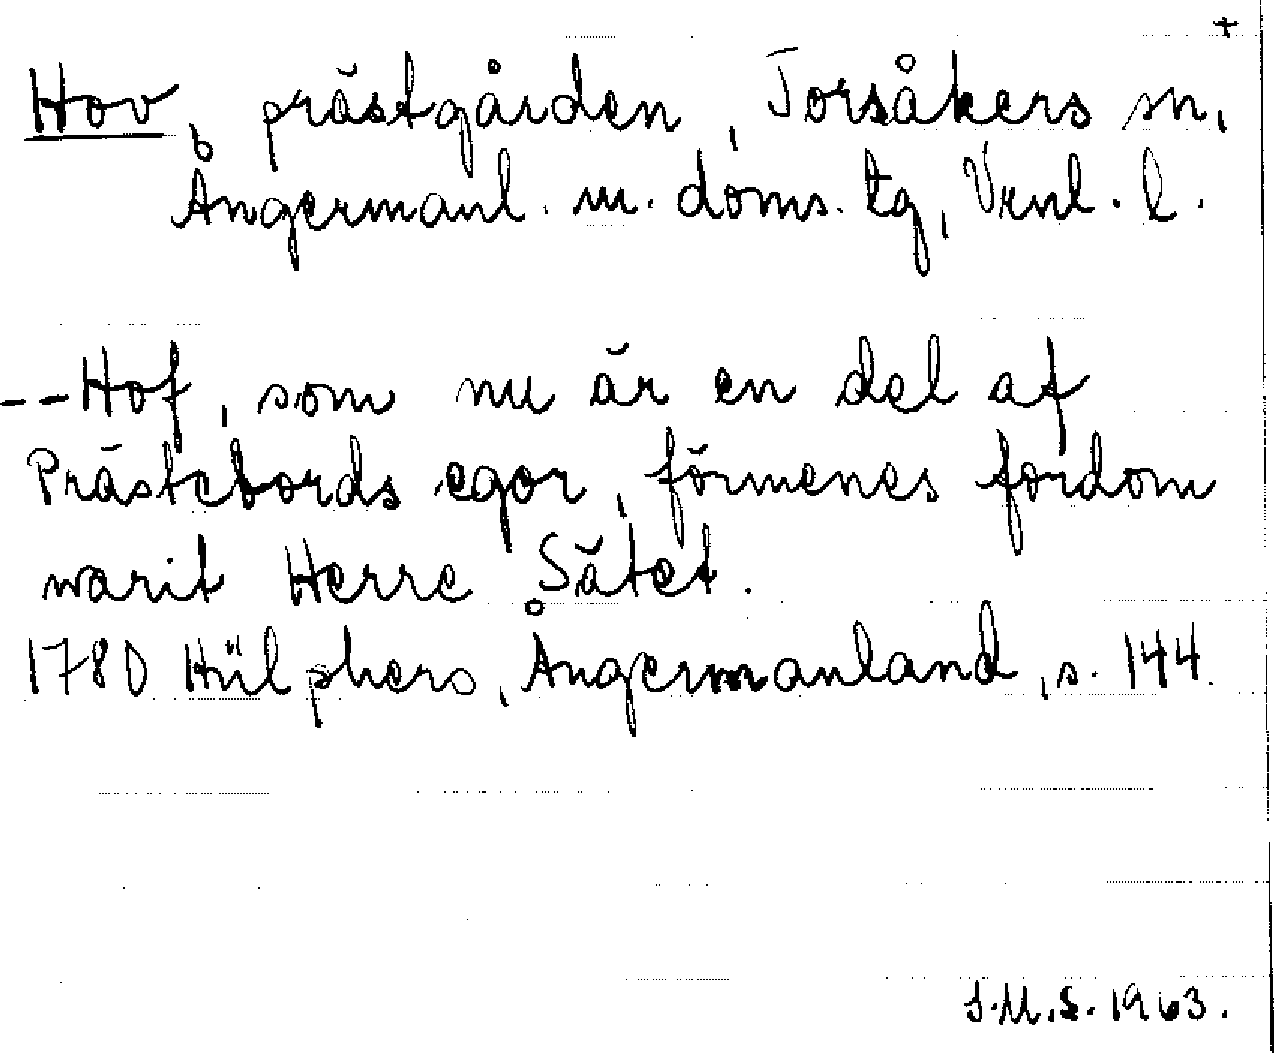 +
Hov, prästgården, Torsåkers sn,
Ångermanl. m. doms. tg, Vrnl. l.
--Hof, som nu är en del af
Prästebords egor, förmenes fordom
warit Herre Sätet.
1780 Hülphers, Ångermanland, s. 144.
S.M.S. 1963.